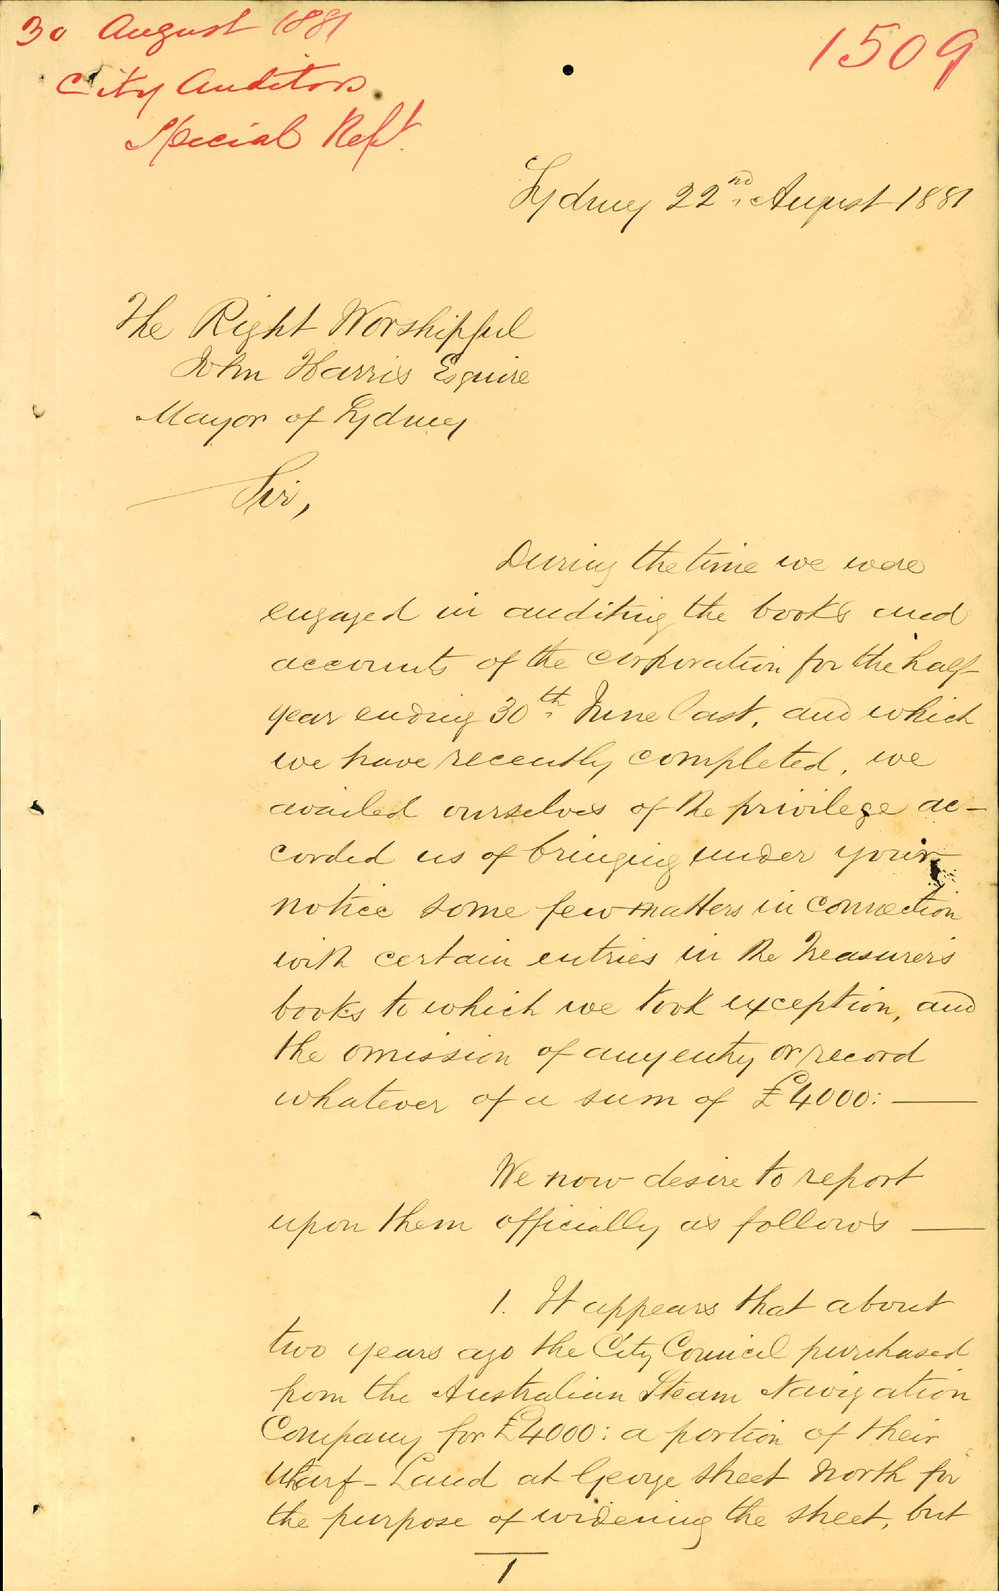 30 August 1881
City Auditors
Special Rept.
1509
Sydney 22nd. August 1881
The Right Worshipful
John Harris Esquire
Mayor of Sydney
Sir,
During the time we were
engaged in auditing the books and
accounts of the corporation for the half
year ending 30th. June last, and which
we have recently completed, we
availed ourselves of the privilege ac-
corded us of bringing under your
notice some few matters in connection
with certain entries in the Treasurer's
books to which we took exception, and
the omission of any entry or record
whatever of a sum of £4000:—
We now desire to report
upon them officially as follows —
1. It appears that about
two years ago the City Council purchased
from the Australian Steam Navigation
Company for £4000: a portion of their
Wharf-Land at George Street North for
the purpose of widening the street, but
1